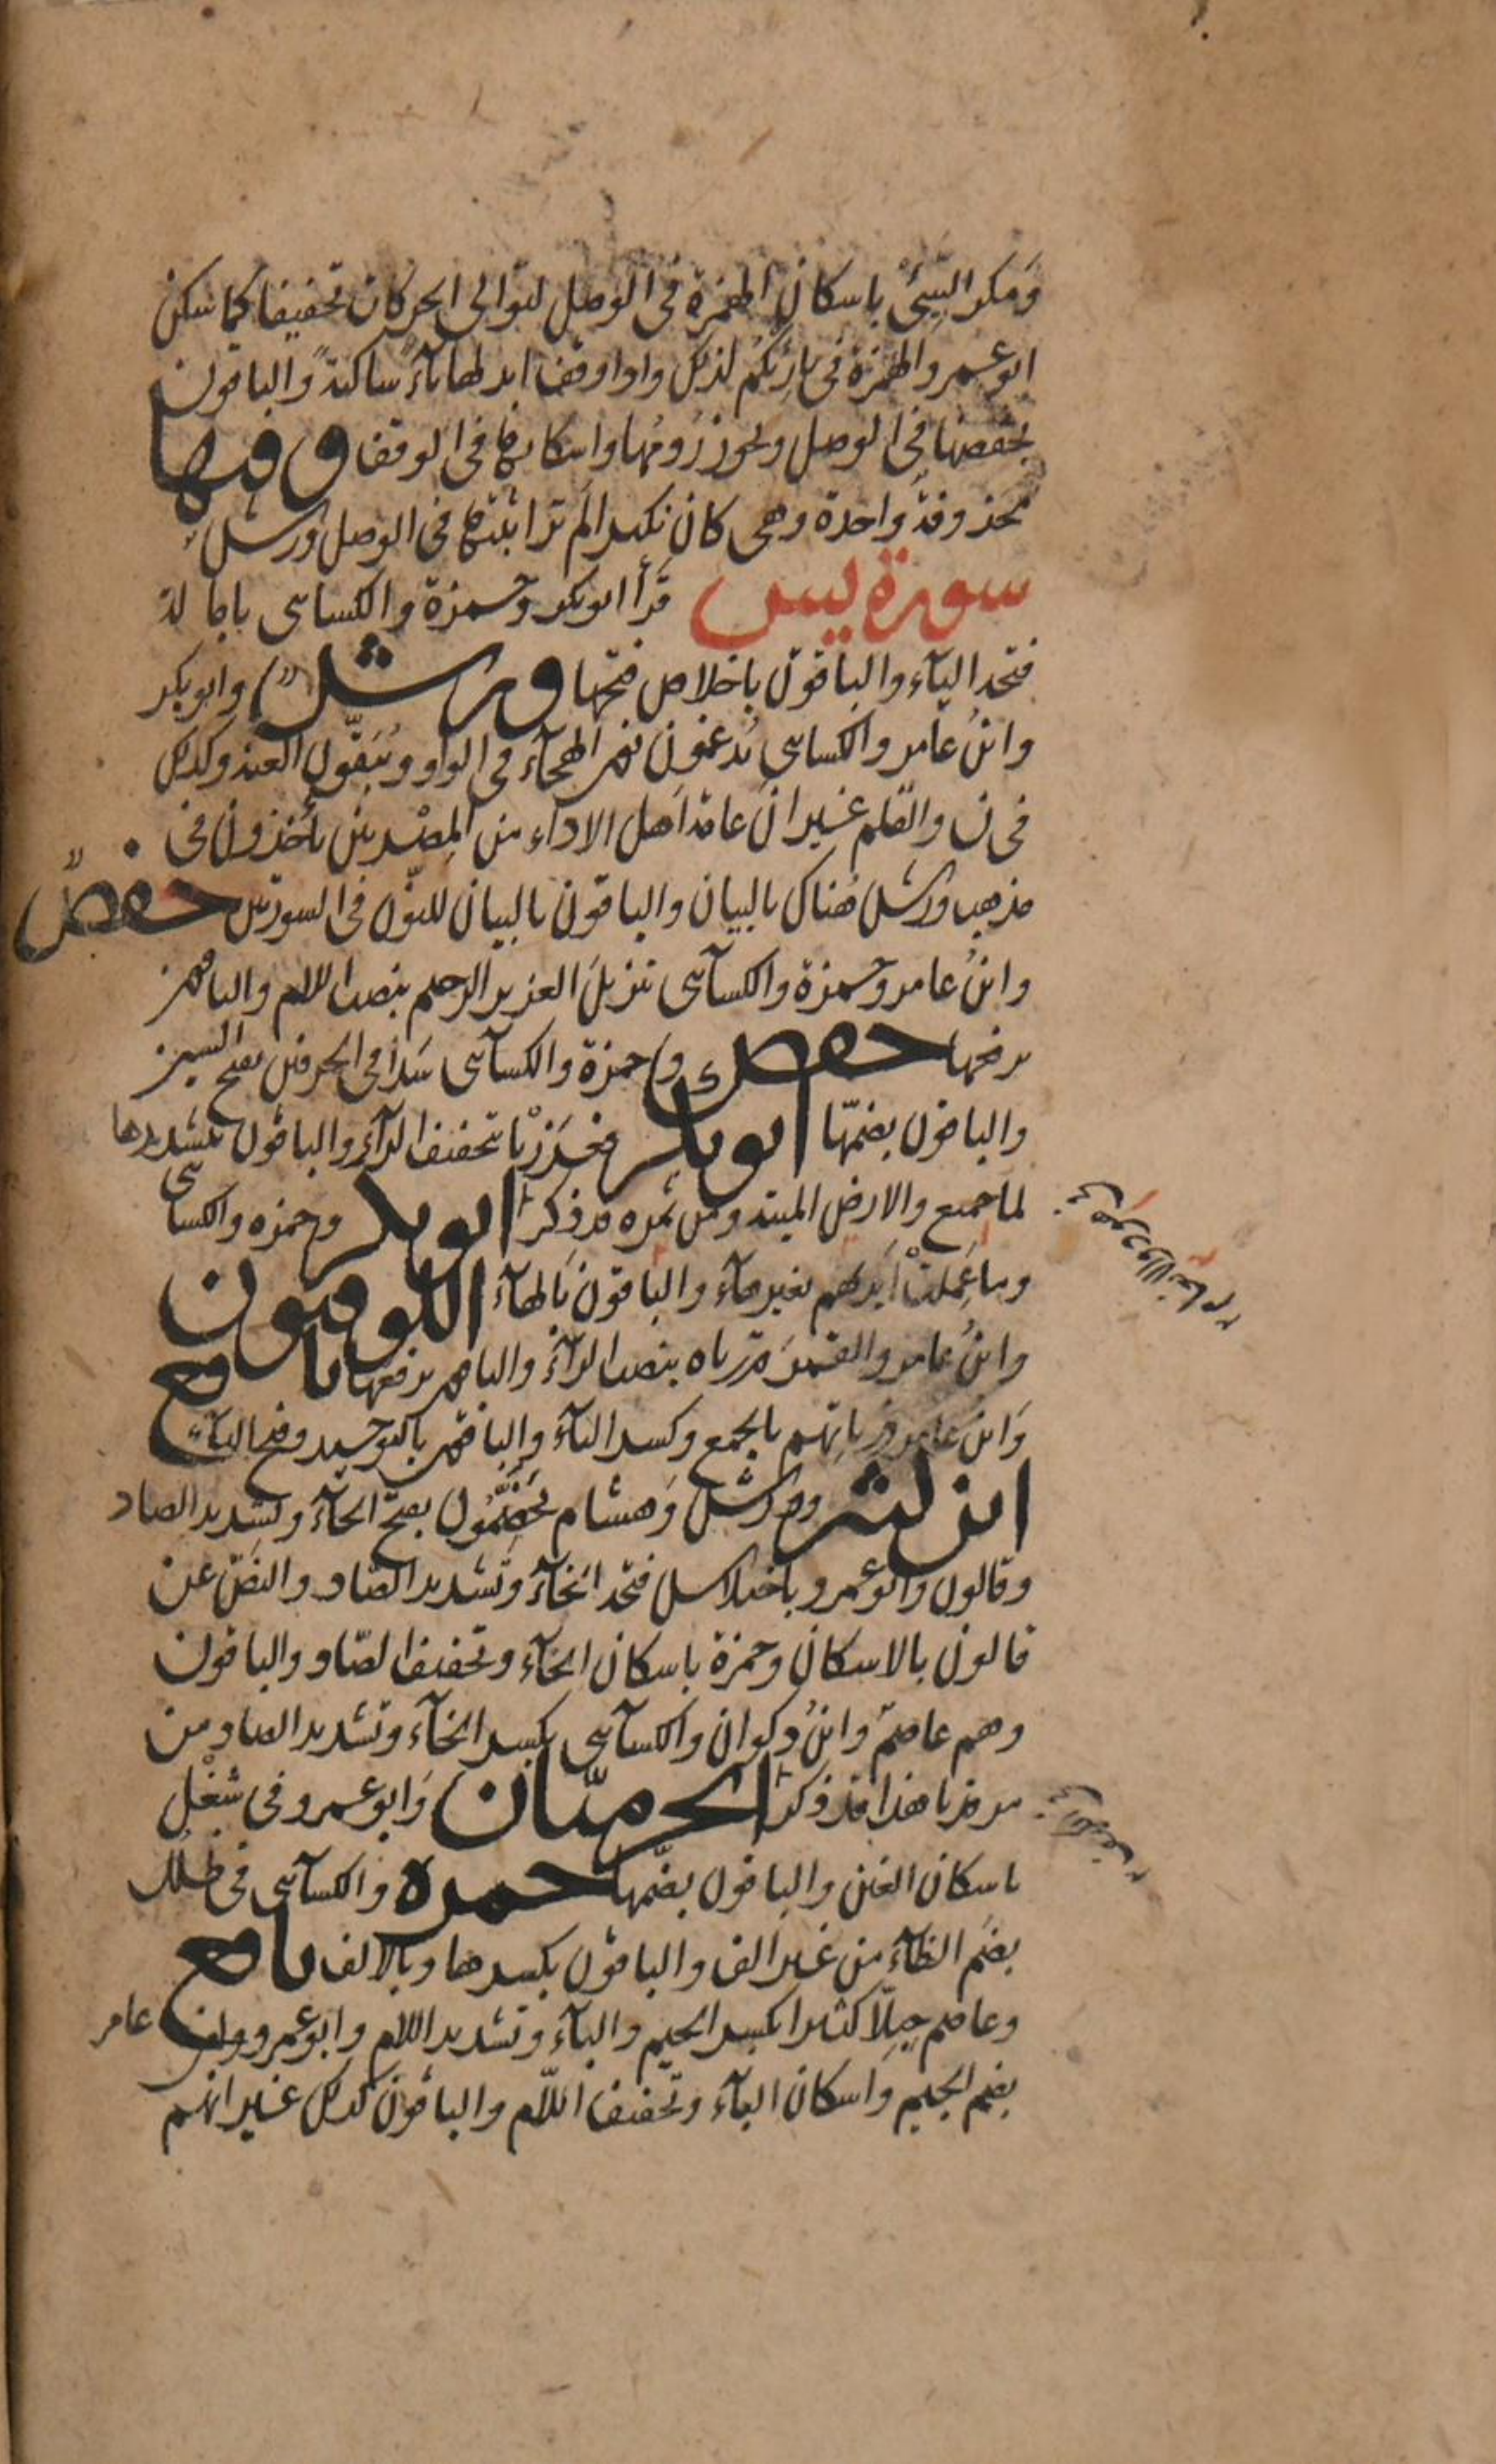 ومكر السيئ باسكان الهمزة في الوصل لتوالي الحركات تخفيفا كما سكن
ابو عمرو الهمزة في بارئكم لذلك واذا وقف ابدلها ياء ساكنة والباقون
بخفضها في الوصل ويجوز رومها واسكانها في الوقف وفيها
محذوفة واحدة وهي كان نكير الم تر اثبتها في الوصل ورش
سورة يس قرأ ابو بكر وحمزة والكسائي بامالة
فتحة الياء والباقون باخلاص فتحها ورش وابو بكر
وابن عامر والكسائي يدغمون نون الهجاء في الواو ويبقون الغنة وكذلك
في ن والقلم غير ان عامة اهل الاداء من المصريين يأخذون في
مذهب ورش هناك بالبيان والباقون بالبيان للنون في السورتين حفص
وابن عامر وحمزة والكسآئي تنزيل العزيز الرحيم بنصب اللام والباقون
برفعها حفص وحمزة والكسآئي سدا في الحرفين بفتح السين
والباقون بضمها ابو بكر فعززنا بتخفيف الزآي والباقون بتشديدها
لما جميع والارض الميتة ومن ثمره قد ذكر ابو بكر وحمزه والكسائي
وما عملت ايديهم بغير هآء والباقون بالهآء الكوفيون
وابن عامر والقمر قدرناه بنصب الرآء والباقون برفعها نافع
وابن عامر ذرياتهم بالجمع وكسر التآء والباقون بالتوحيد وفتح التآء
ابن كثير وورش وهشام يخصمون بفتح الخآء وتشديد الصاد
وقالون وابو عمرو باختلاس فتحة الخآء وتشديد الصاد والنص عن
قالون بالاسكان وحمزة باسكان الخآء وتخفيف الصاد والباقون
وهم عاصم وابن ذكوان والكسآئي بكسر الخآء وتشديد الصاد من
مرقدنا هذا قد ذكر الحرميان وابو عمرو في شغل
باسكان الغين والباقون بضمها حمزة والكسآئي في ظلل
بضم الظآء من غير الف والباقون بكسرها وبالالف نافع
وعاصم جبلا كثيرا بكسر الجيم والبآء وتشديد اللام وابو عمرو وابن عامر
بضم الجيم واسكان البآء وتخفيف اللام والباقون كذلك غير انهم